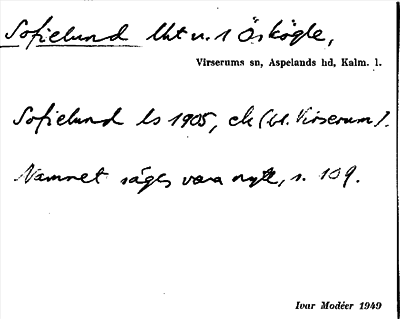 Sofielund lht u. 1 Öskögle,
Virserums sn, Aspelands hd, Kalm. l.
Sofielund ls 1905, ek (bl. Virserum).
Namnet säges vara nytt, s. 109.
Ivar Modéer 1949